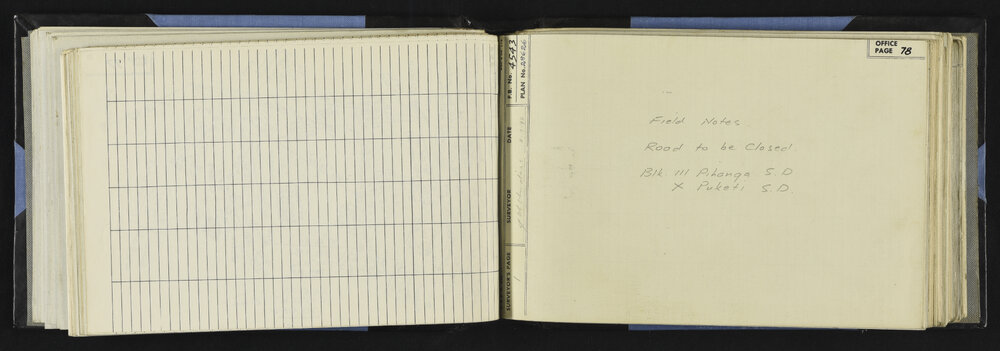 F.B. No. 4543
PLAN No. 29626
DATE
SURVEYOR
SURVEYOR'S PAGE 1
OFFICE
PAGE 78
Field Notes
Road to be Closed
Blk III Pihanga S.D
X Puketi S.D.